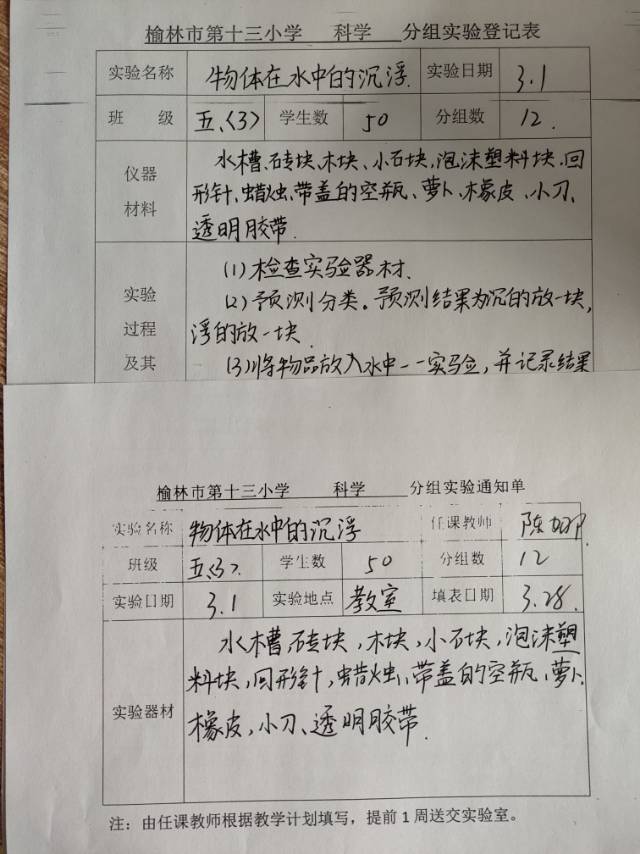 榆林市第十三小学 科学 分组实验登记表
实验名称 物体在水中的沉浮. 实验日期 3.1
班 级 五、〈3〉 学生数 50 分组数 12.
仪器 水槽、砖块、木块、小石块、泡沫塑料块、回
形针、蜡烛、带盖的空瓶、萝卜、橡皮、小刀、
材料 透明胶带.
(1) 检查实验器材.
实验 (2) 预测分类。预测结果为沉的放一块,
过程 浮的放一块.
及其 (3) 将物品放入水中一一实验, 并记录结果
榆林市第十三小学 科学 分组实验通知单
实验名称 物体在水中的沉浮 任课教师 陈
班级 五〈3〉. 学生数 50 分组数 12
实验日期 3.1 实验地点 教室 填表日期 3.28.
水槽、砖块, 木块, 小石块, 泡沫塑
料块, 回形针, 蜡烛、带盖的空瓶、萝卜、
实验器材 橡皮, 小刀、透明胶带.
注：由任课教师根据教学计划填写，提前 1 周送交实验室。